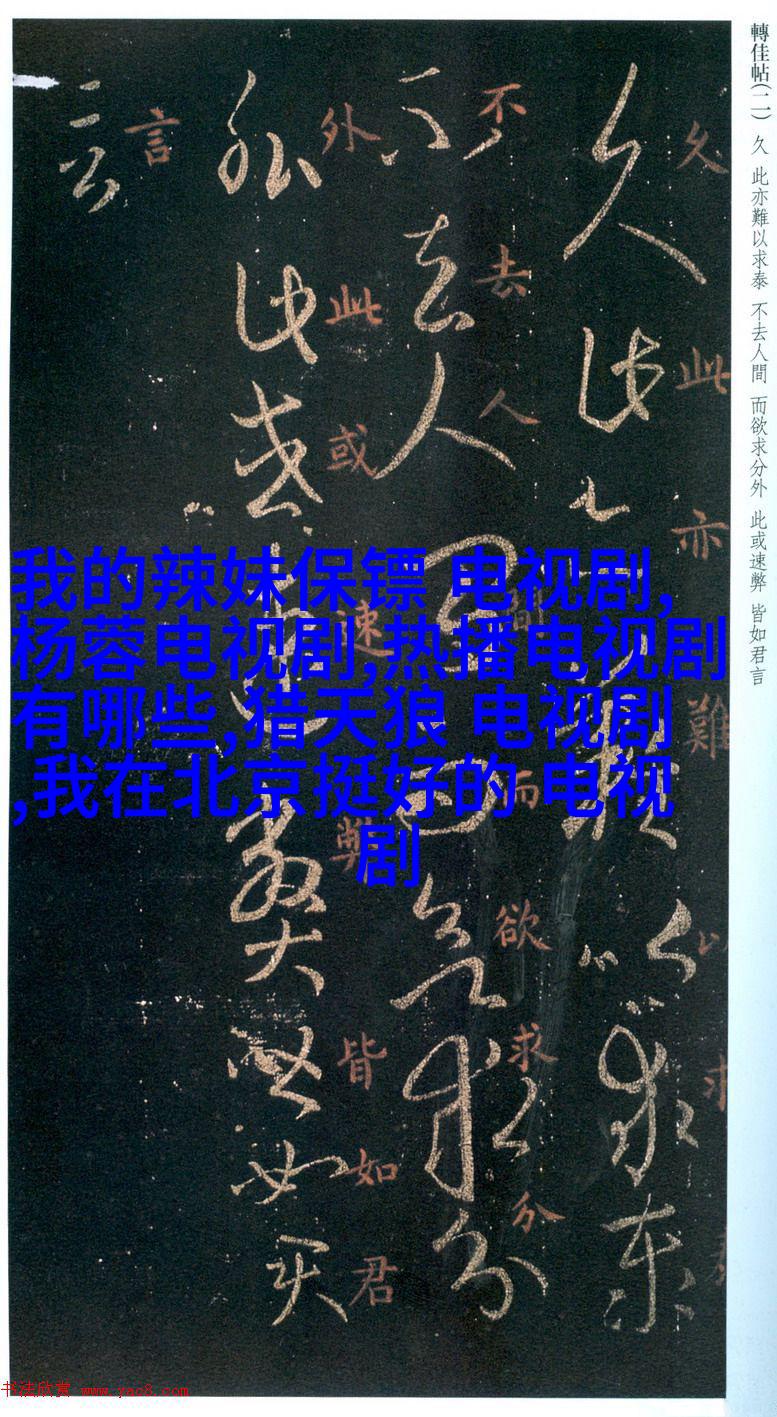 轉佳帖(二) 久 此亦難以求泰 不去人間 而欲求分外 此或速弊 皆如君言
久此亦難以求
不去人間而欲求分
外此或速弊皆如君
言
我的辣妹保镖 电视剧,
杨蓉电视剧,热播电视剧
有哪些,猎天狼 电视剧
,我在北京挺好的 电视
剧
书法欣赏 www.yac8.com